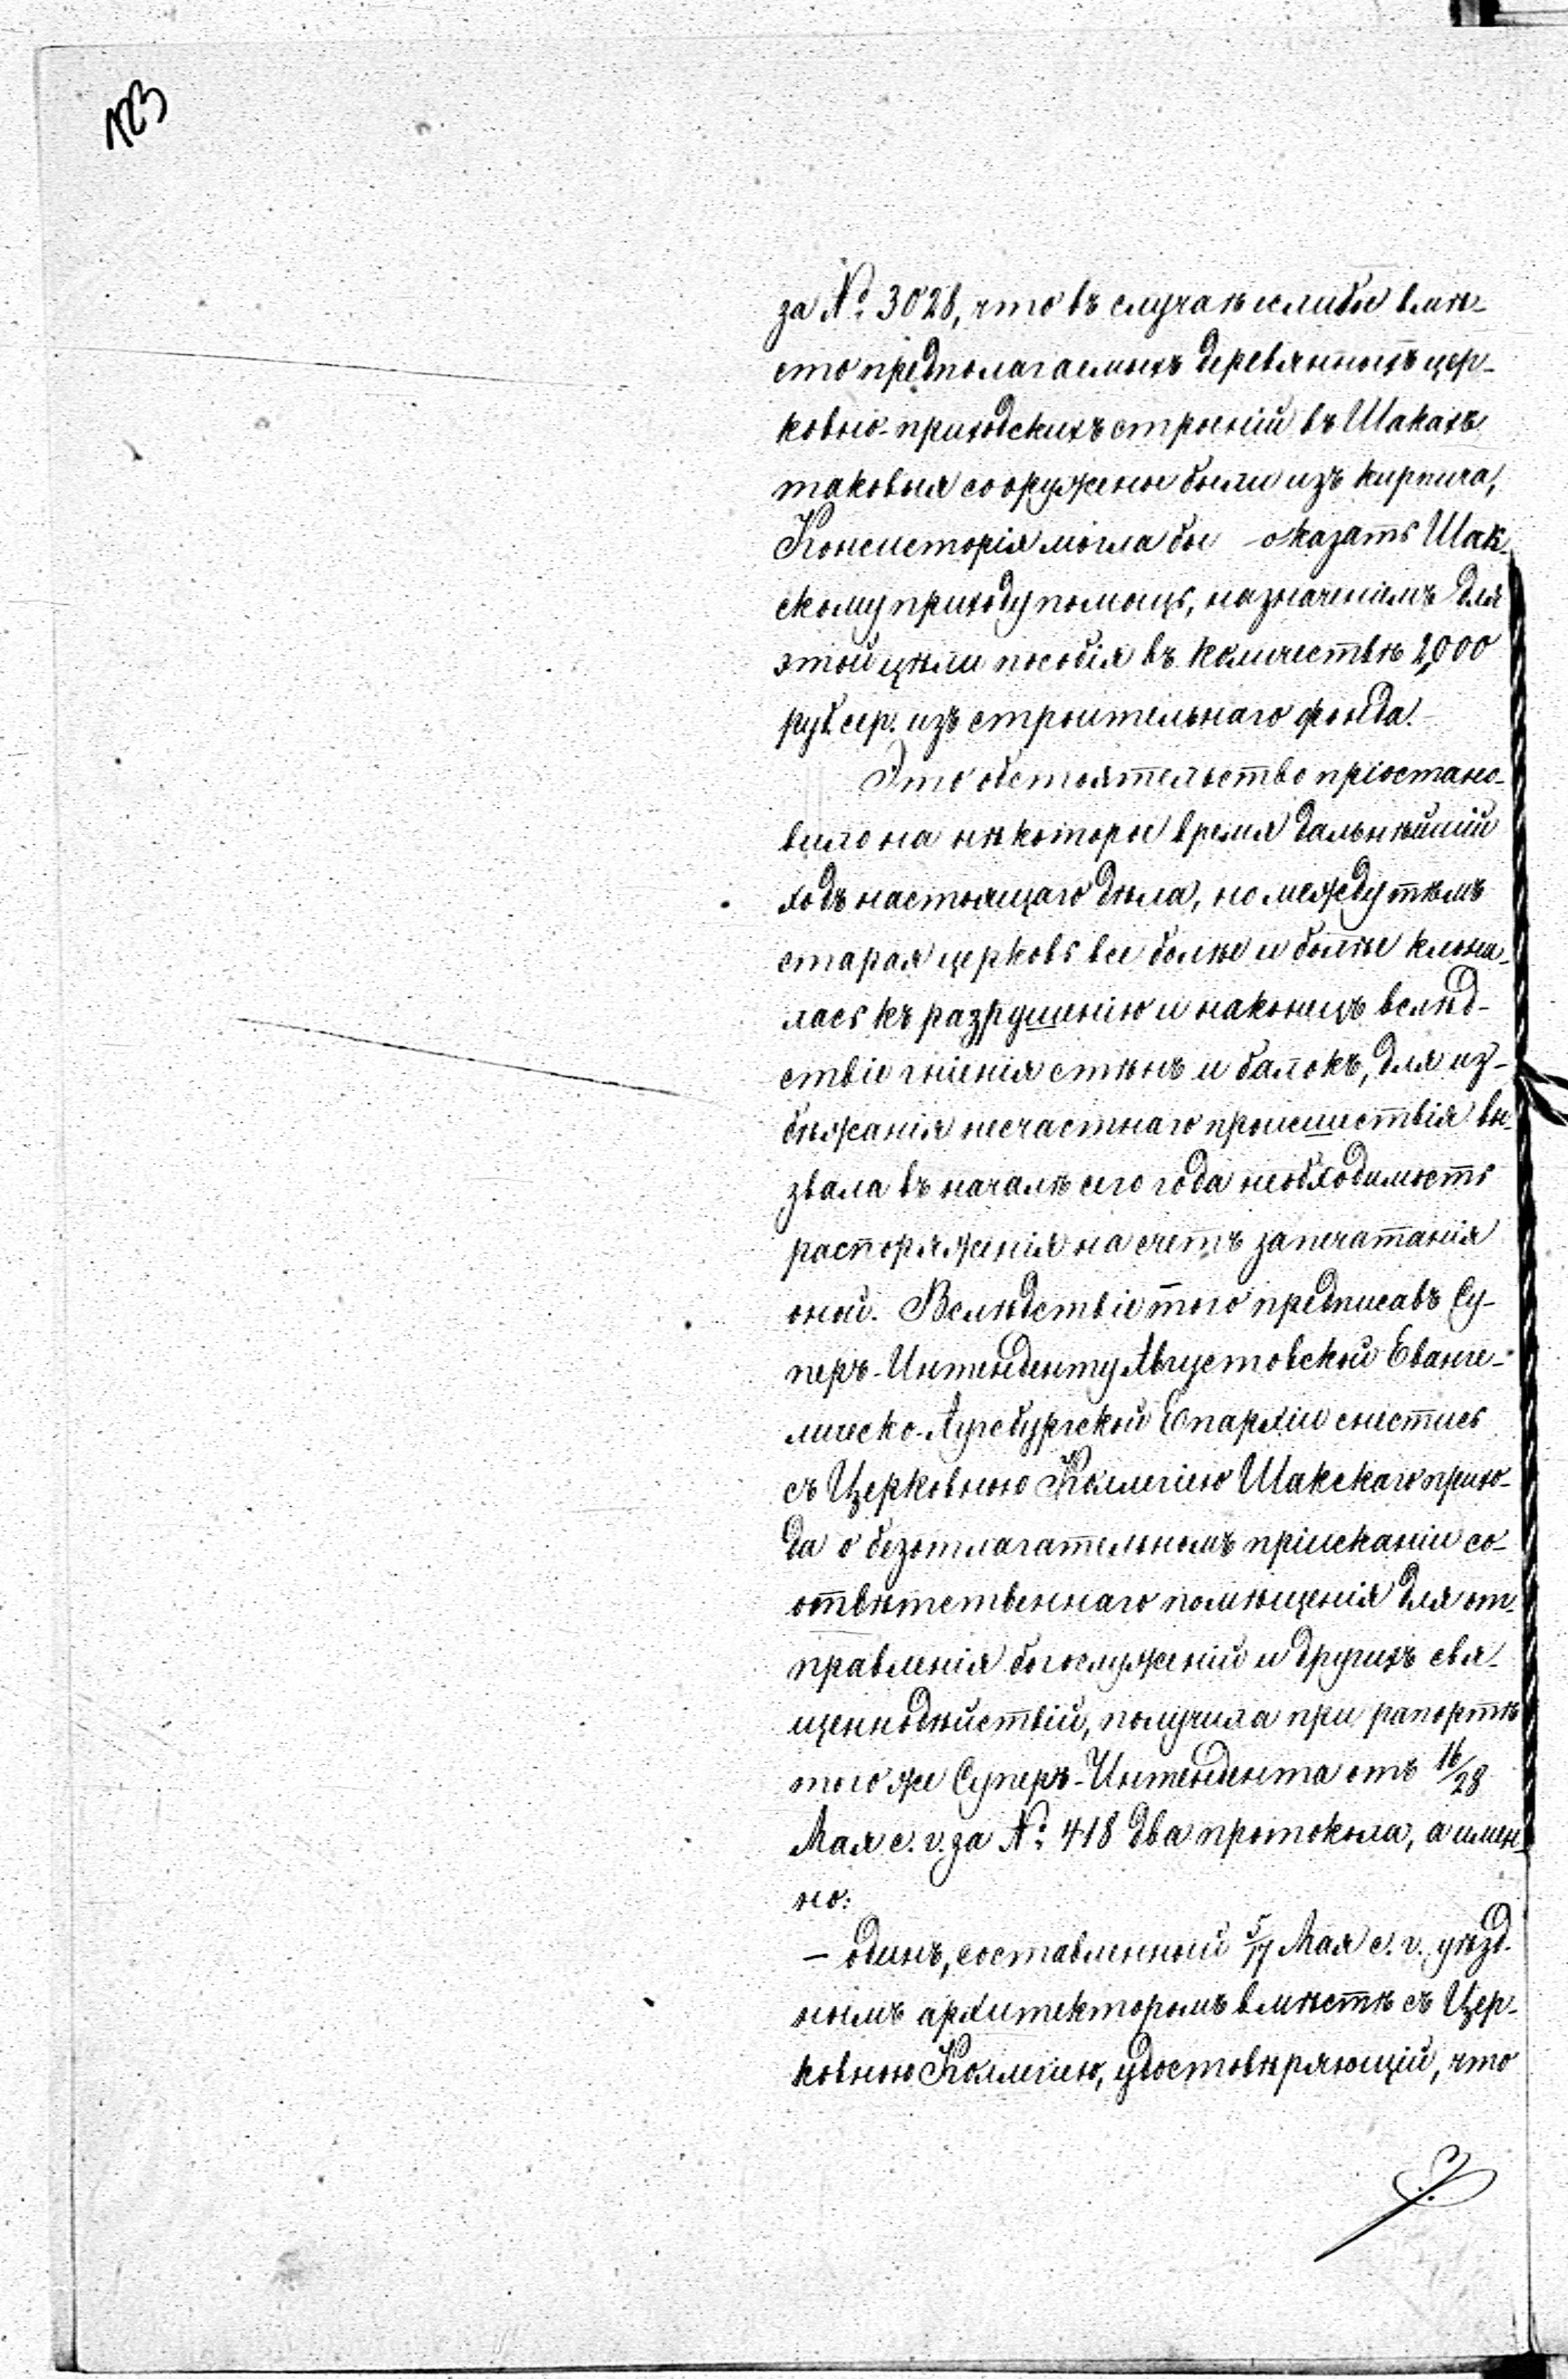 123
за №: 3028, что въ случаѣ еслибы вмѣ-
сто предполагаемыхъ деревянныхъ цер-
ковно-приходскихъ строеній въ Шакахъ
таковыя сооружены были изъ кирпича,
Консисторія могла бы оказать Шак-
скому приходу помощь, назначеніемъ для
этой цѣли пособія въ количествѣ 2,000
руб. сер. изъ строительнаго фонда.
Это обстоятельство пріостано-
вило на нѣкоторое время дальнѣйшій
ходъ настоящаго дѣла, но между тѣмъ
старая церковь все болѣе и болѣе клони-
лась къ разрушенію и наконецъ вслѣд-
ствіе гніенія стѣнъ и балокъ, для из-
бѣжанія несчастнаго происшествія вы-
звала въ началѣ сего года необходимость
распоряженія на счетъ запечатанія
оной. Вслѣдствіе того предписавъ Су-
перъ-Интенденту Августовской Еванге-
лическо-Аугсбургской Епархіи снестись
съ Церковною Коллегіею Шакскаго прихо-
да о безотлагательномъ пріисканіи со-
отвѣтственнаго помѣщенія для от-
правленія богослуженій и другихъ свя-
щеннодѣйствій, получила при рапортѣ
того же Суперъ-Интендента отъ 16/28
Мая с. г. за №: 418 два протокола, а имен-
но:
— одинъ, составленный 5/17 Мая с. г. уѣзд-
нымъ архитекторомъ вмѣстѣ съ Цер-
ковною Коллегіею, удостовѣряющій, что